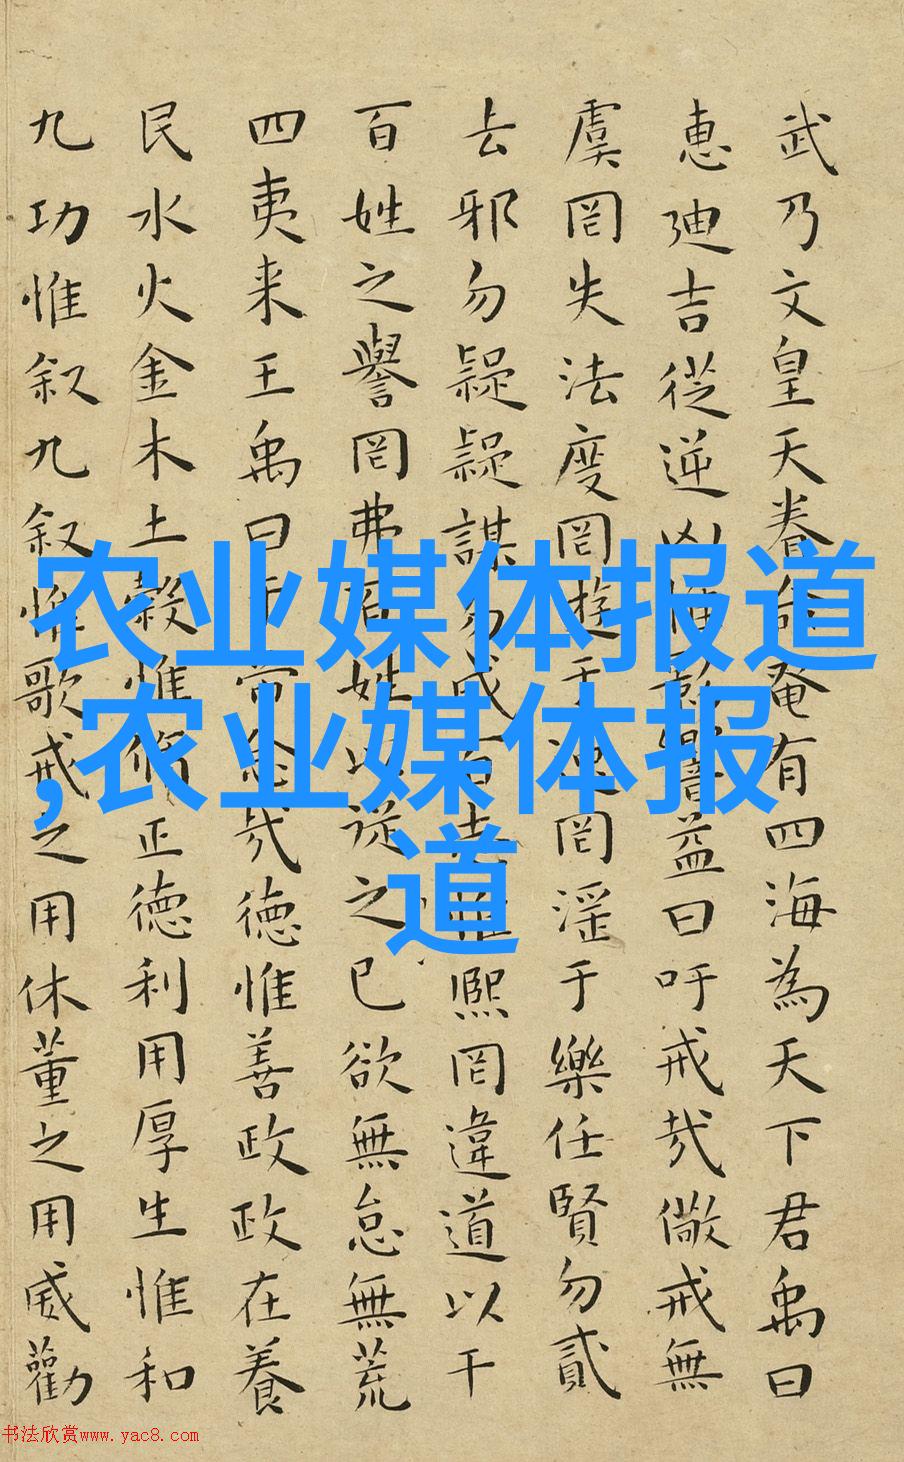 武乃文皇天眷命奄有四海為天下君禹曰
惠迪吉從逆凶惟影響益曰吁戒哉儆戒無
虞罔失法度罔遊于逸罔淫于樂任賢勿貳
去邪勿疑疑謀勿成百志惟熙罔違道以干
百姓之譽罔弗百姓以從之已欲無怠無荒
四夷来王禹曰帝念哉德惟善政政在養
民水火金木土穀惟脩正德利用厚生惟和
九功惟叙九叙惟歌戒之用休董之用威勸
农业媒体报道
,农业媒体报
道
书法欣赏www.yac8.com